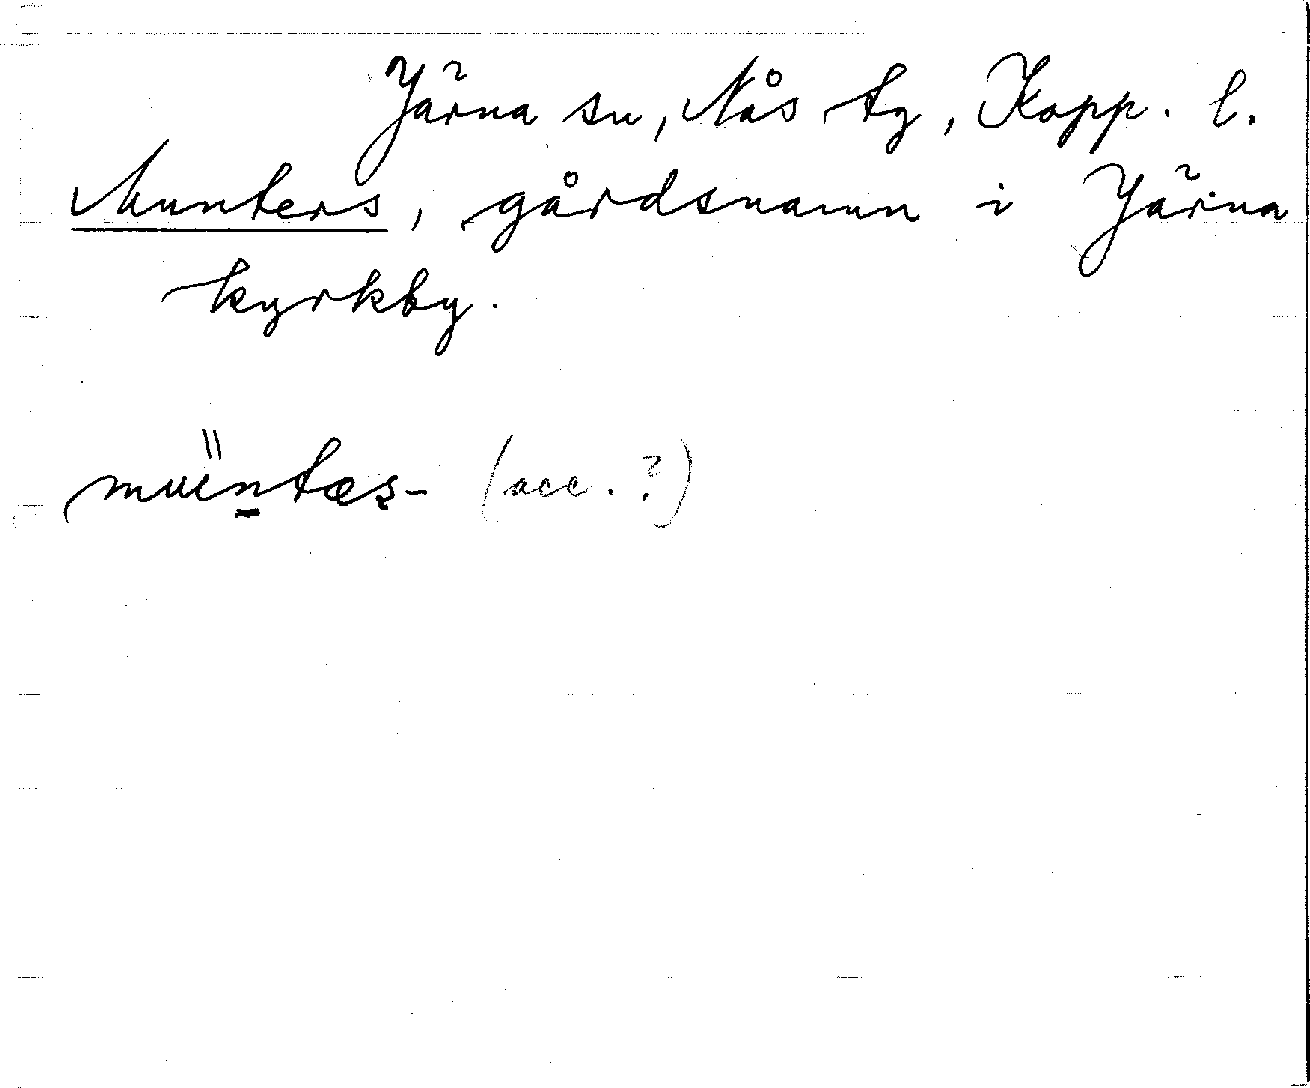 Järna sn, Nås tg, Kopp. l.
Munters, gårdsnamn i Järna
kyrkby.
(acc.?)